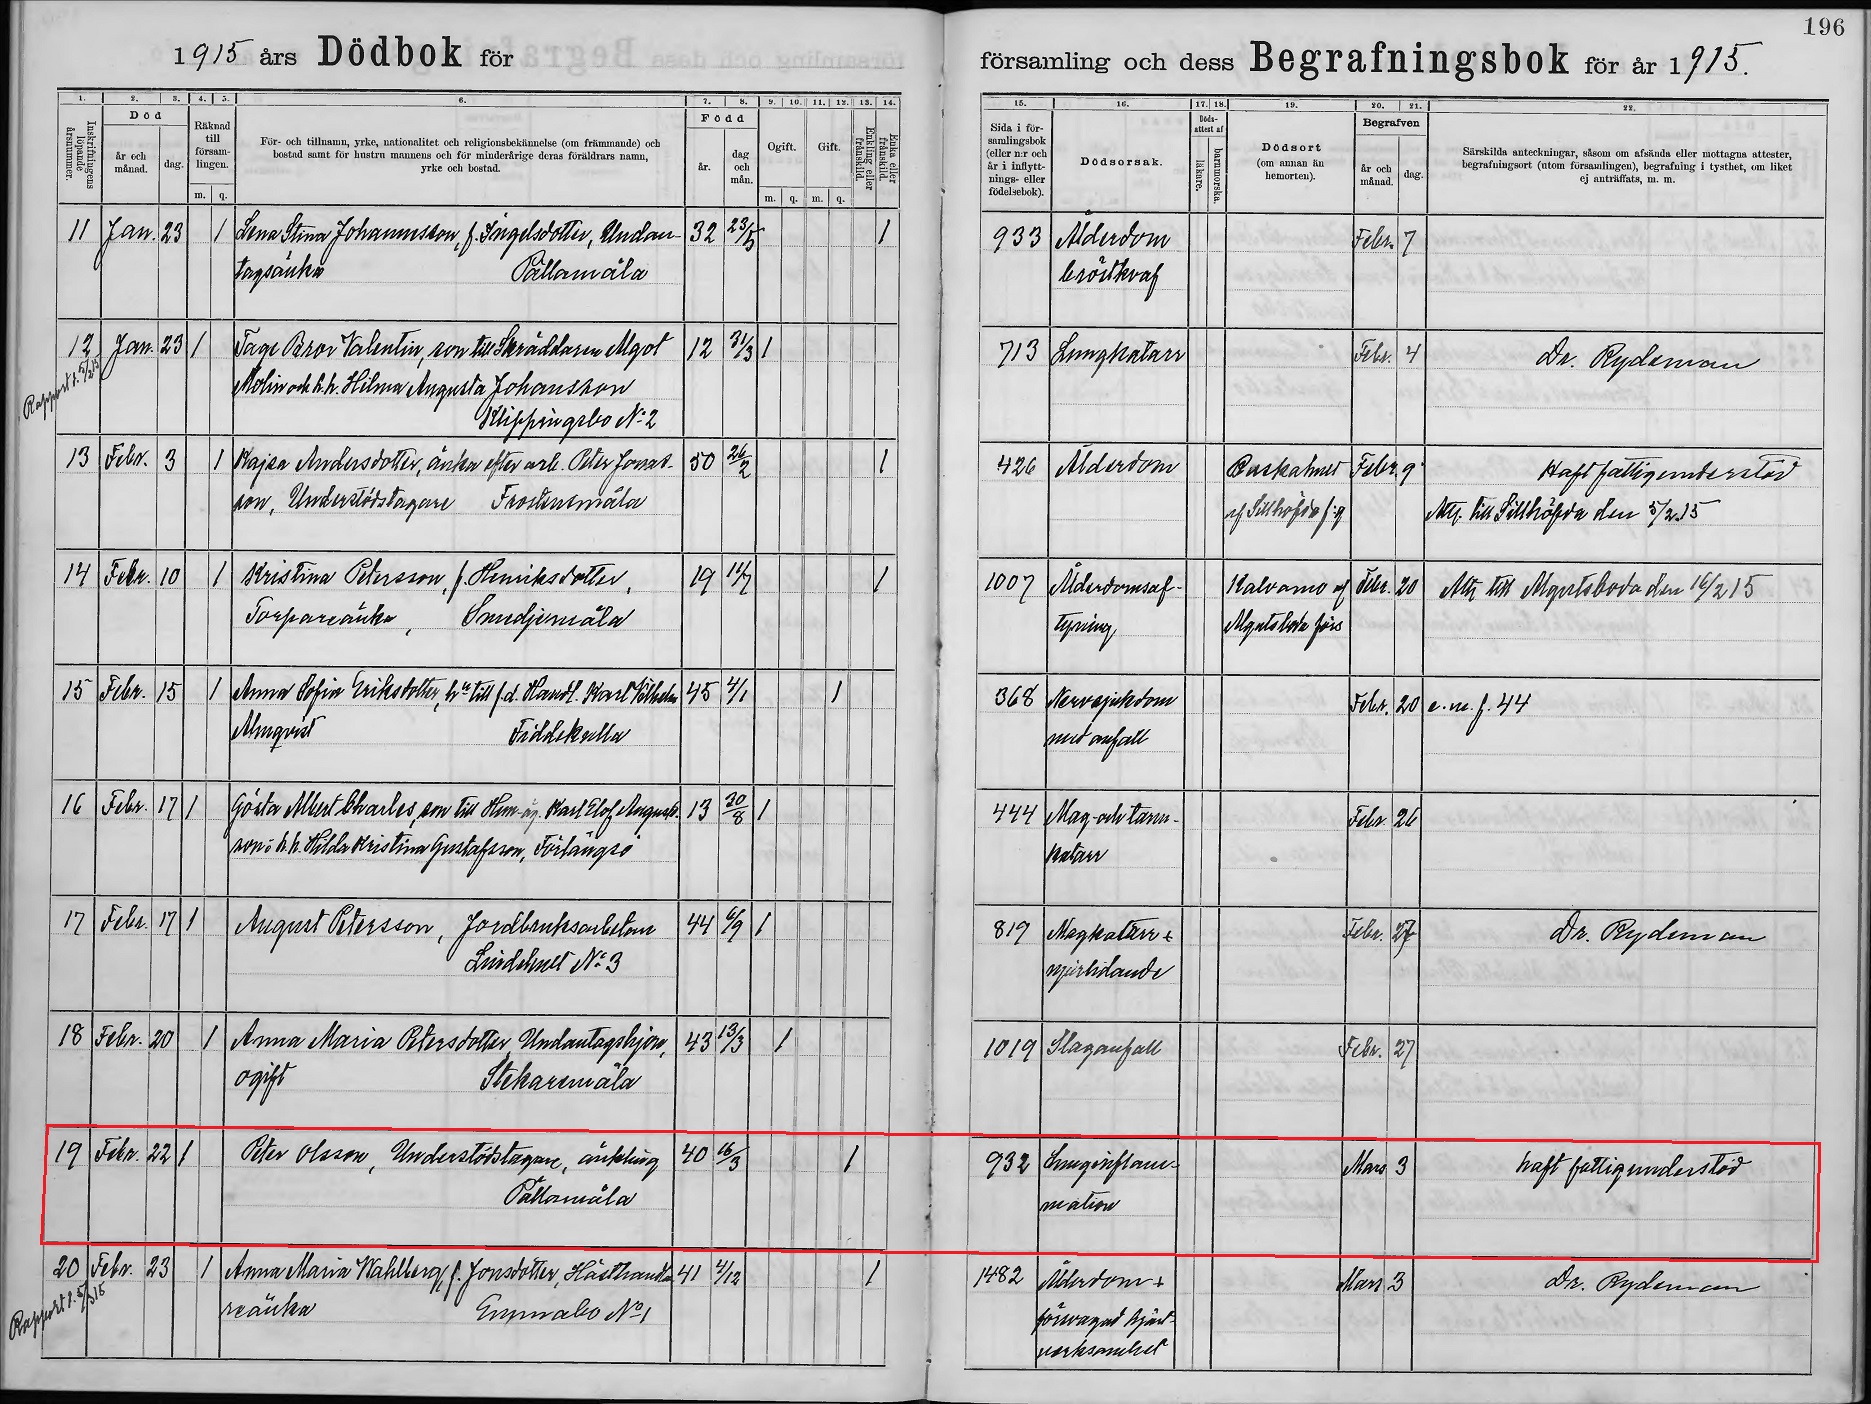 196
1915 års Dödbok för
församling och dess Begrafningsbok för år 1915.
1. 2. 3. 4. 5. 6. 7. 8. 9. 10. 11. 12. 13. 14.
15. 16. 17. 18. 19. 20. 21. 22.
Inskrifningens löpande årsnummer.
Död
år och månad.
dag.
Räknad till församlingen.
m. q.
För- och tillnamn, yrke, nationalitet och religionsbekännelse (om främmande) och
bostad samt för hustru mannens och för minderårige deras föräldrars namn,
yrke och bostad.
Född
år.
dag och mån.
Ogift.
m. q.
Gift.
m. q.
Enkling eller frånskild.
Enka eller frånskild.
Sida i för-
samlingsbok
(eller n:r och
år i inflytt-
nings- eller
födelsebok).
Dödsorsak.
Döds-
attest af
läkare.
barnmorska.
Dödsort
(om annan än
hemorten).
Begrafven
år och månad.
dag.
Särskilda anteckningar, såsom om afsända eller mottagna attester,
begrafningsort (utom församlingen), begrafning i tysthet, om liket
ej anträffats, m. m.
11 Jan. 23 1 Lena Stina Johannisson, f. Ingelsdotter, Undan- 32 23/5 1 933 Ålderdom Febr. 7
tagsänka Pållamåla bröstkvaf
12 Jan. 23 1 Tage Bror Valentin, son till Skräddaren Algot 12 31/3 1 713 Lungkatarr Febr. 4 Dr. Rydeman
Molin och h.h. Hilma Augusta Johansson
Klippingsbo No 2
Rapport d. 5/2 15
13 Febr. 3 1 Kajsa Andersdotter, änka efter arb. Peter Jonas- 30 26/2 1 426 Ålderdom Febr. 9 Haft fattigunderstöd
son, Understödstagare Frostensmåla af Sillhöfda f:g Att. till Sillhöfda den 5/2 15
14 Febr. 10 1 Kristina Petersson, f. Henriksdotter, 19 14/7 1 1007 Ålderdomsaf- Kalvamo af Febr. 20 Att. till Algutsboda den 16/2 15
Torpareänka, Smedjemåla tyning Algutsboda förs
15 Febr. 15 1 Anna Sofia Eriksdotter, hu till f.d. Handl. Karl Vilhelm 45 4/1 1 368 Nervsjukdom Febr. 20 e. m. f. 44
Almqvist Fiddekulla med anfall
16 Febr. 17 1 Gösta Albert Charles, son till Hem-äg. Karl Elof August- 13 30/8 1 444 Mag- och tarm- Febr. 26
son o h.h. Hilda Kristina Gustafsson, Förlångsö katarr
17 Febr. 17 1 August Petersson, Jordbruksarbetare 44 6/9 1 819 Magkatarr + Febr. 27 Dr. Rydeman
Lindehult No 3 njurlidande
18 Febr. 20 1 Anna Maria Petersdotter, Undantagshjon, 43 13/3 1 1019 Slaganfall Febr. 27
ogift Stekaremåla
19 Febr. 22 1 Peter Olsson, Understödstagare, änkling 40 16/3 1 932 Lunginflam- Mars 3 haft fattigunderstöd
Pållamåla mation
20 Febr. 23 1 Anna Maria Wahlberg, f. Jonsdotter, Hästhandla- 41 4/12 1 1482 Ålderdom + Mars 3 Dr. Rydeman
reänka Emmabo No 1 försvagad hjärt-
verksamhet
Rapport d. 5/3 15